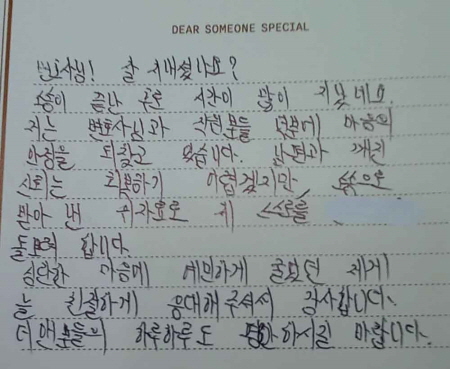 DEAR SOMEONE SPECIAL
변호사님! 잘 지내셨나요?
소송이 끝난 후로 시간이 많이 지났네요.
저는 변호사님과 직원분들 덕분에 마음의
안정을 되찾고 있습니다. 남편과 깨진
신뢰는 회복하기 어렵겠지만 소송으로
받아 낸 위자료로 제 스스로를
돌보려 합니다.
심란한 마음에 예민하게 굴었던 제게
늘 친절하게 응대해주셔서 감사합니다.
하루하루도 평안하시길 바랍니다.